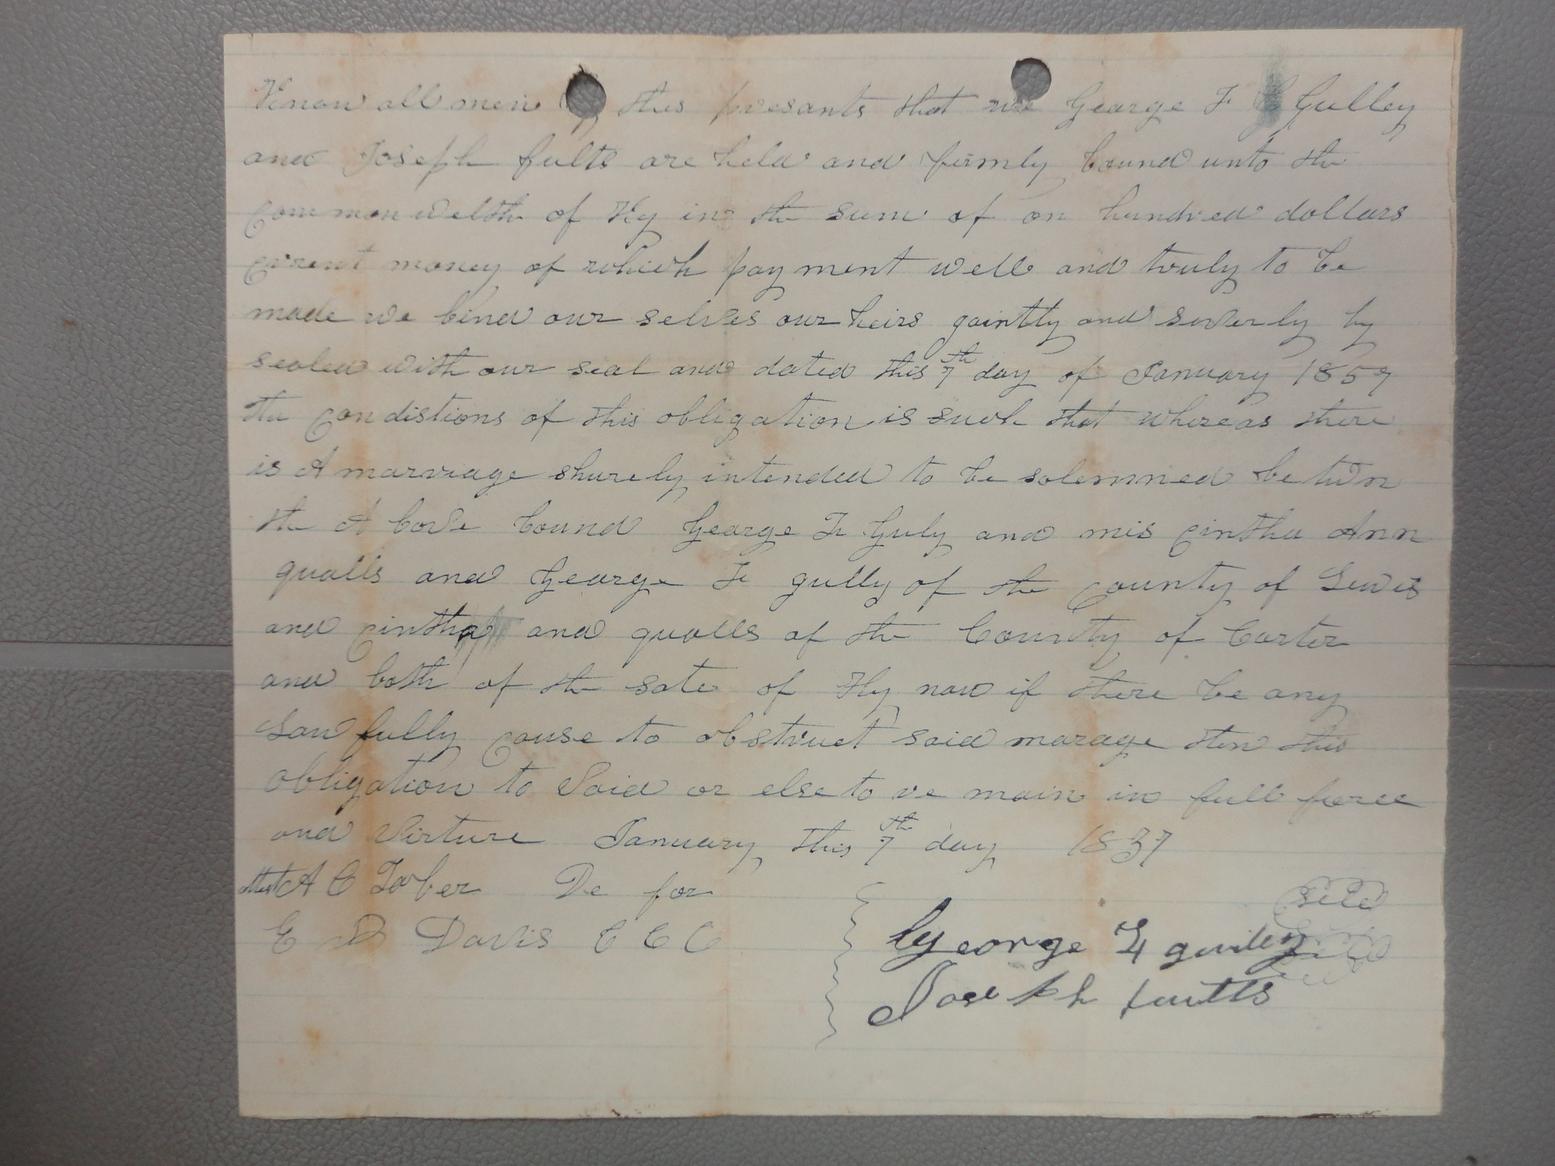 Know all men by this presants that we George F Gulley
and Joseph fults are held and firmly bound unto the
common welth of Ky in the sum of on hundred dollars
curent money of which pay ment well and truly to be
made we bind our selves our heirs gointly and severly by
sealed with our seal and dated this 7th day of January 1857
the condistions of this obligation is such that whereas there
is A marriage shurely intended to be solemnied be twn
the A bove bound George F Guly and mis cintha Ann
qualls and George F gully of the county of Lewis
and cintha and qualls of the County of Carter
and both of the sate of Ky now if there be any
Law fully cause to obstruct said marage then this
obligation to Void or else to re main in full force
and Virture January this 7th day 1857
Attest A C Tober De for
E D Davis C C C
George F guiley seal
Joseph fultts